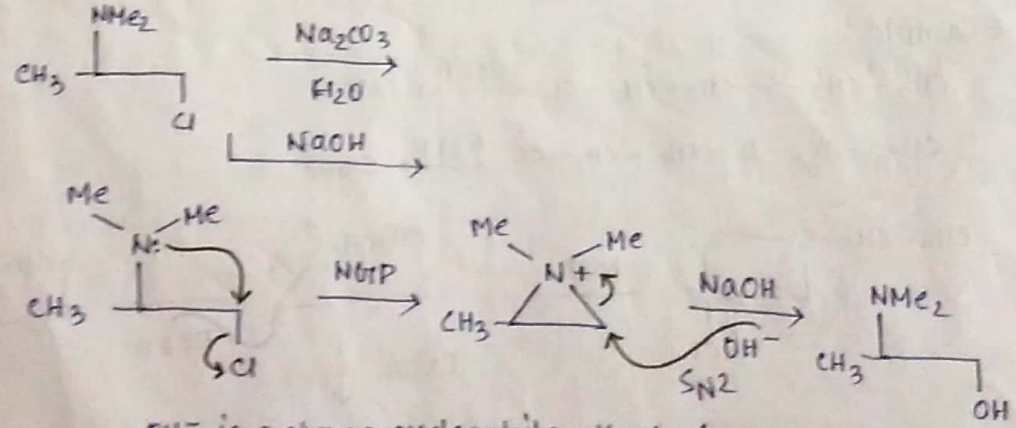 NMe2
CH3
Cl
Na2CO3
H2O
NaOH
Me
Me
N:
CH3
Cl
NGP
Me
Me
N+
CH3
NaOH
OH-
SN2
NMe2
CH3
OH